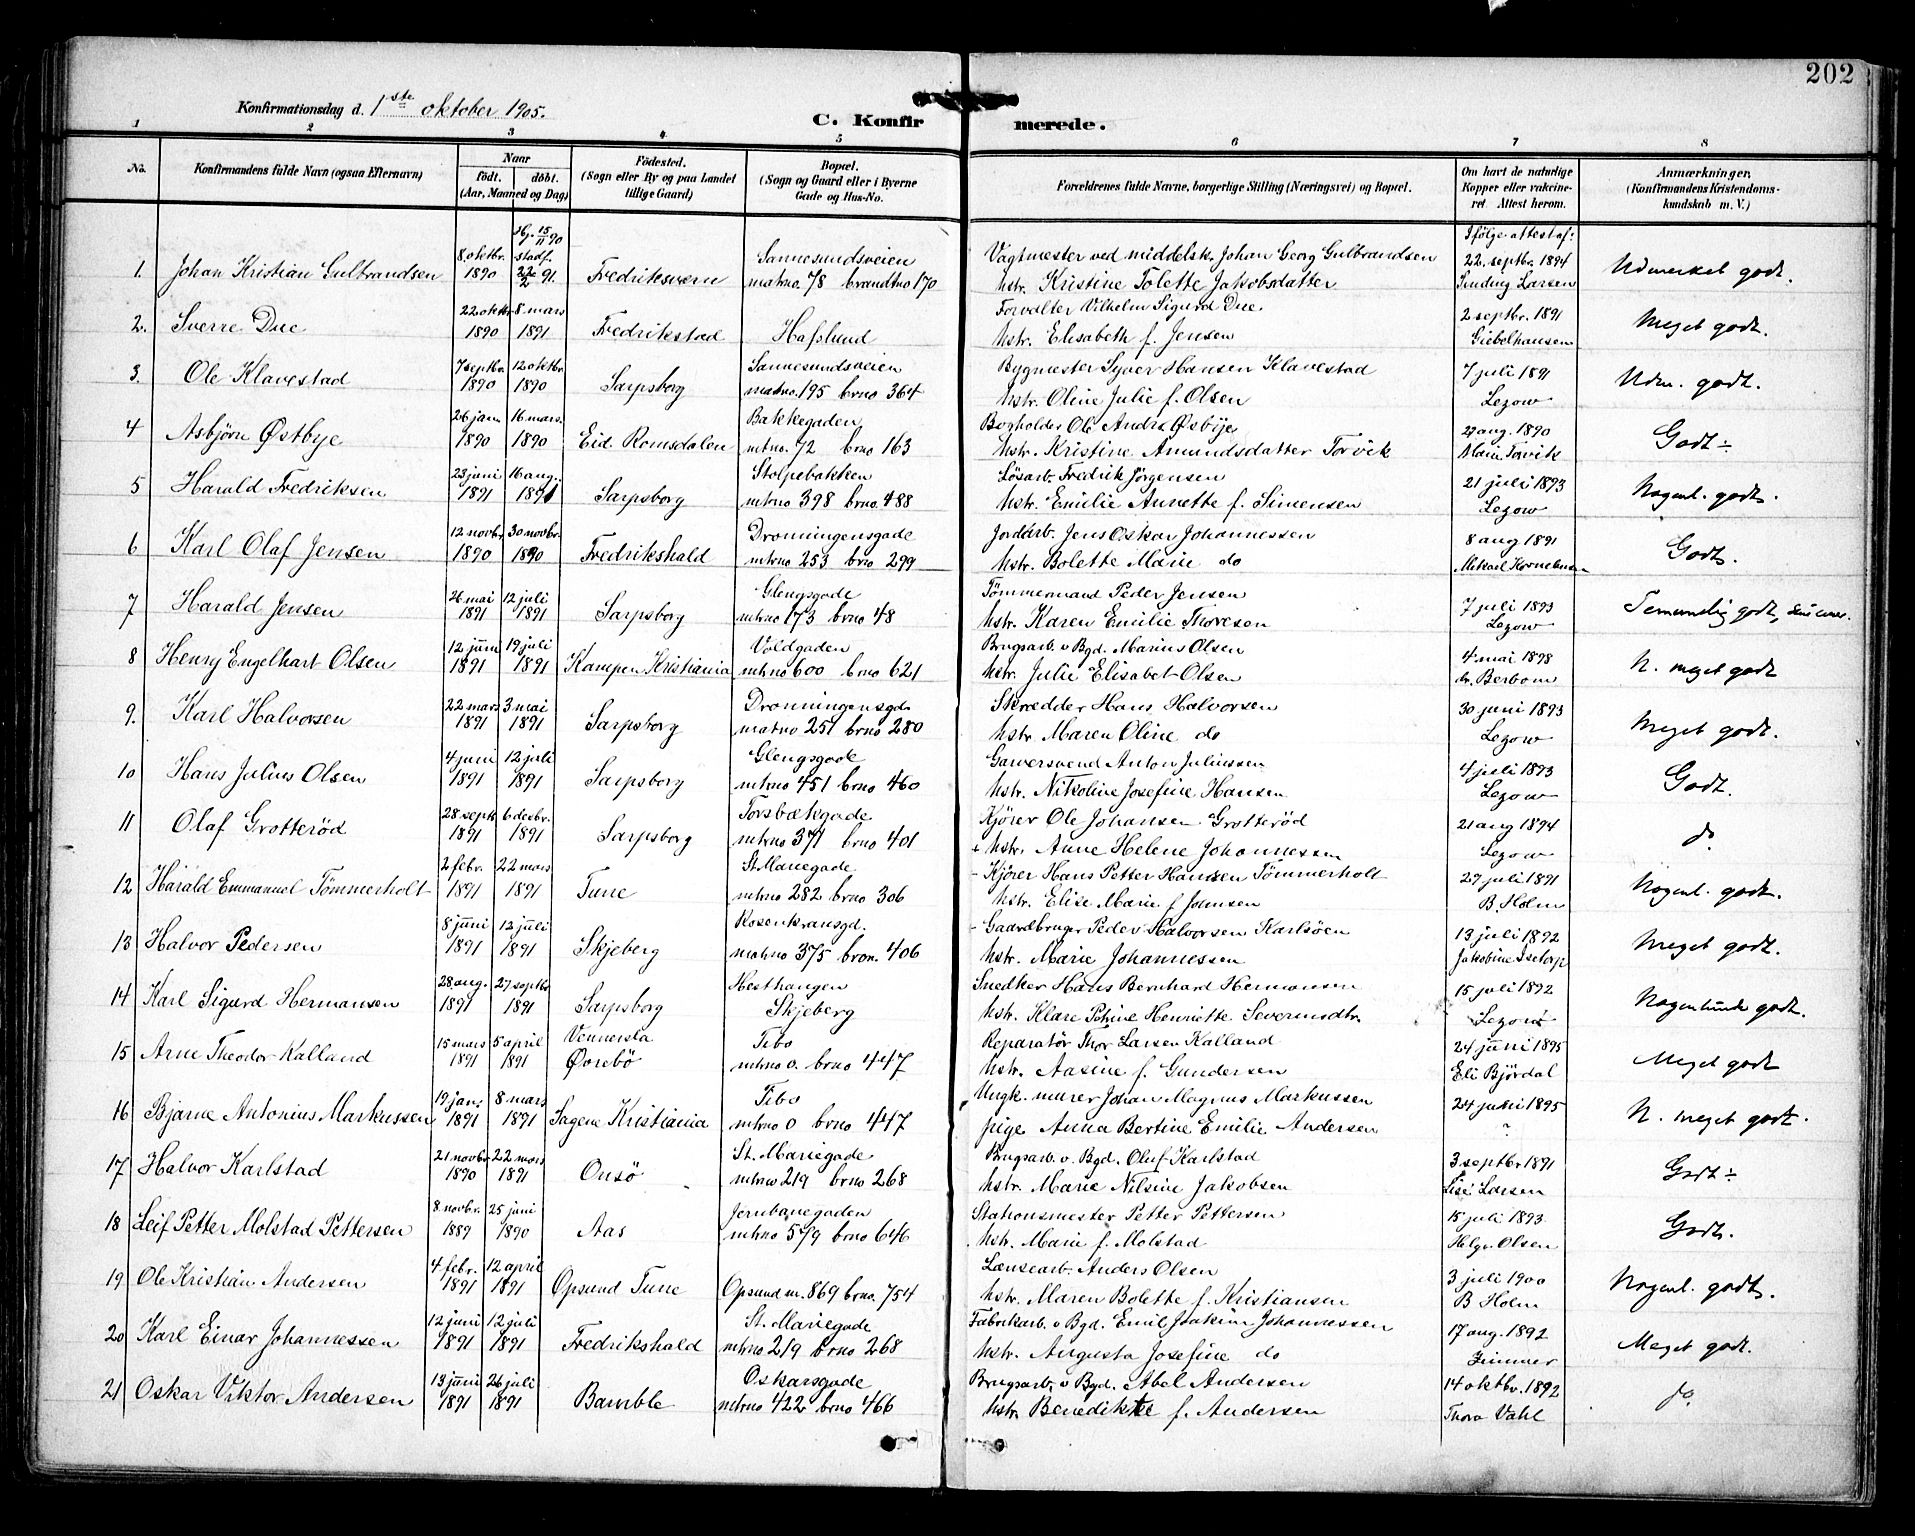 202
Konfirmationsdag d. 1ste oktober 1905.
C. Konfirmerede.
1 2 3 4 5 6 7 8
No. Konfirmandens fulde Navn (ogsaa Efternavn) Naar født. døbt. (Aar, Maaned og Dag) Födested. (Sogn eller By og paa Landet tillige Gaard) Bopæl. (Sogn og Gaard eller i Byerne Gade og Hus-No. Forældrenes fulde Navne, borgerlige Stilling (Næringsvei) og Bopæl. Om havt de naturlige Kopper eller vakcineret. Attest herom. Anmærkninger. (Konfirmandens Kristendomskundskab m. V.)
hj. 15/11 90 Ifølge attest af:
1. Johan Kristian Gulbrandsen 8 oktbr. 1890 stadf. 22/2 91. Fredriksværn Sannesundsveien matrno. 78 brandtno 170 Vagtmester ved middelsk. Johan Georg Gulbrandsen
hstr. Kristine Tolette Jakobsdatter 22. septbr. 1894 Sinding Larsen Udmerket godt.
2. Sverre Due 22 oktbr 1890 8 mars 1891 Fredrikstad Hafslund Forvalter Vilhelm Sigurd Due.
hstr. Elisabeth f. Jensen 2 septbr. 1891 Giebelhausen Meget godt.
3. Ole Klavestad 7 septbr. 1890 12 oktbr. 1890 Sarpsborg Sannesundsveien matrno. 195 brno 364 Bygmester Syver Hansen Klavestad
hstr. Oline Julie f. Olsen 7 juli 1891 Lezow Udm. godt.
4 Asbjørn Østbye 26 jan 1890 16 mars. 1890 Eid Romsdalen Bakkegaden mtrno. 72 brno 163 Bogholder Ole Andre Østbye
hstr. Kristine Amundsdatter Torvik 27 aug. 1890 Marie Torvik Godt÷
5 Harald Fredriksen 23 juni 1891 16 aug. 1891 Sarpsborg Stolpebakken mtrno 398 brno. 488 Løsarb. Fredrik Jørgensen
hstr. Emilie Annette f. Simensen 21 juli 1893 Lezow Nogenl. godt.
6 Karl Olaf Jensen 12 novbr. 1890 30 novbr. 1890 Fredrikshald Dronningensgade mtrno 253 brno 299 Jordarb. Jens Oskar Johannessen
hstr. Bolette Marie do 8 aug 1891 Mikael Korneliussen Godt.
7 Harald Jensen 26 mai 1891 12 juli 1891 Sarpsborg Glengsgade mtrno 173 brno 48 Tømmermand Peder Jensen
hstr. Karen Emilie Thoresen 7 juli 1893 Lezow Temmelig godt,
8 Henry Engelhart Olsen 12 juni 1891 19 juli 1891 Kampen Kristiania Voldgaden mtrno 600 brno 621 Brugsarb. v Bgd. Marius Olsen
hstr. Julie Elisabet Olsen 4 mai 1898 Berbom N. meget godt
9. Karl Halvorsen 22 mars 1891 3 mai 1891 Sarpsborg Dronningensgd. matrno 251 brno 280 Skrædder Hans Halvorsen
hstr. Maren Oline do 30 juni 1893 Lezow Meget godt.
10 Hans Julius Olsen 4 juni 1891 12 juli 1891 Sarpsborg Glengsgade mtrno 451 brno 460 Garversvend Anton Juliussen
hstr. Nikoline Josefine Hansen 4 juli 1893 Lezow Godt.
11 Olaf Grotterød 28 septb 1891 6 desbr. 1891 Sarpsborg Torsbækgade mtrno 371 brno 401 Kjører Ole Johansen Grotterød
hstr. Anne Helene Johannessen 21 aug 1894 Lezow do
12 Harald Emmanuel Tømmerholt 2 febr. 1891 22 mars 1891 Tune St. Mariegade mtrno 282 brno 306 Kjører Hans Petter Hansen Tømmerholt
hstr. Elise Marie f. Johnsen 27 juli 1891 B. Holm Nogenl. godt.
13 Halvor Pedersen 8 juni 1891 12 juli 1891 Skjeberg Rosenkransgd. matrno 375 brno. 406 Gaardbruger Peder Halvorsen Karlsøen
hstr. Marie Johannessen 13 juli 1892 Jakobine Isetorp Meget godt.
14 Karl Sigurd Hermansen 28 aug. 1891 27 septbr 1891 Sarpsborg Hesthaugen Skjeberg Snedker Hans Bernhard Hermansen
hstr. Klare Petrine Henriette Severinsdtr. 15 juli 1892 Lezow Nogenlunde godt.
15 Arne Theodor Kalland 15 mars 1891 5 april 1891 Vennersla Øvrebø Tibo mtrno 0. brno 447 Reparatør Thor Larsen Kalland
hstr. Aasine f. Gundersen 24 juni 1895 Eli Bjørdal Meget godt
16 Bjarne Antonius Markussen 19 jan. 1891 8 mars 1891 Sagene Kristiania Tibo mtrno 0 brno 447 Ungk. murer Johan Magnus Markussen
pige Anna Bertine Emilie Andersen 24 juni 1895 ? N. meget godt.
17 Halvor Karlstad 21 novbr 1890 22 mars 1891 Onsø St. Mariegade mtrno 219 brno 268 Brugsarb. v. Bgd. Oluf Karlstad
hstr. Marie Nilsine Jakobsen 3 septbr 1891 Lise Larsen Godt÷
18 Leif Petter Molstad Pettersen 8 novbr. 1889 25 juni 1890 Aas Jernbanegaden mtrno 579 brno 646 Stationsmester Petter Pettersen
hstr. Marie f. Molstad 15 juli 1893 Helga Olsen Godt.
19 Ole Kristian Andersen 4 febr. 1891 12 april 1891 Opsund Tune Opsund m. 869 brno. 754 Lænsearb. Anders Olsen
hstr. Maren Bolette f. Kristiansen 3 juli 1900 B Holm Nogenl. godt.
20 Karl Einar Johannessen 12 juni 1891 12 juli 1891 Fredrikshald St. Mariegade mtrno 219 brno 268 Fabrikarb. v Bgd. Emil Joakim Johannessen
hstr. Augusta Josefine do 17 aug. 1892 Zimmer Meget godt.
21 Oskar Viktor Andersen 13 juni 1891 26 juli 1891 Bamble Oskarsgade mtrno 422 brno 466 Brugsarb. v Bgd. Abel Andersen
hstr. Benedikte f. Andersen 14 oktbr. 1892 Thora Vahl do